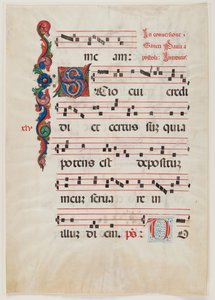 me am:
In conversione
Sancti Pauli a
postoli. Introitus
SCio cui credi
di et certus sum quia
xlv
potens est depositum
meum servare in
illum diem. ps. D